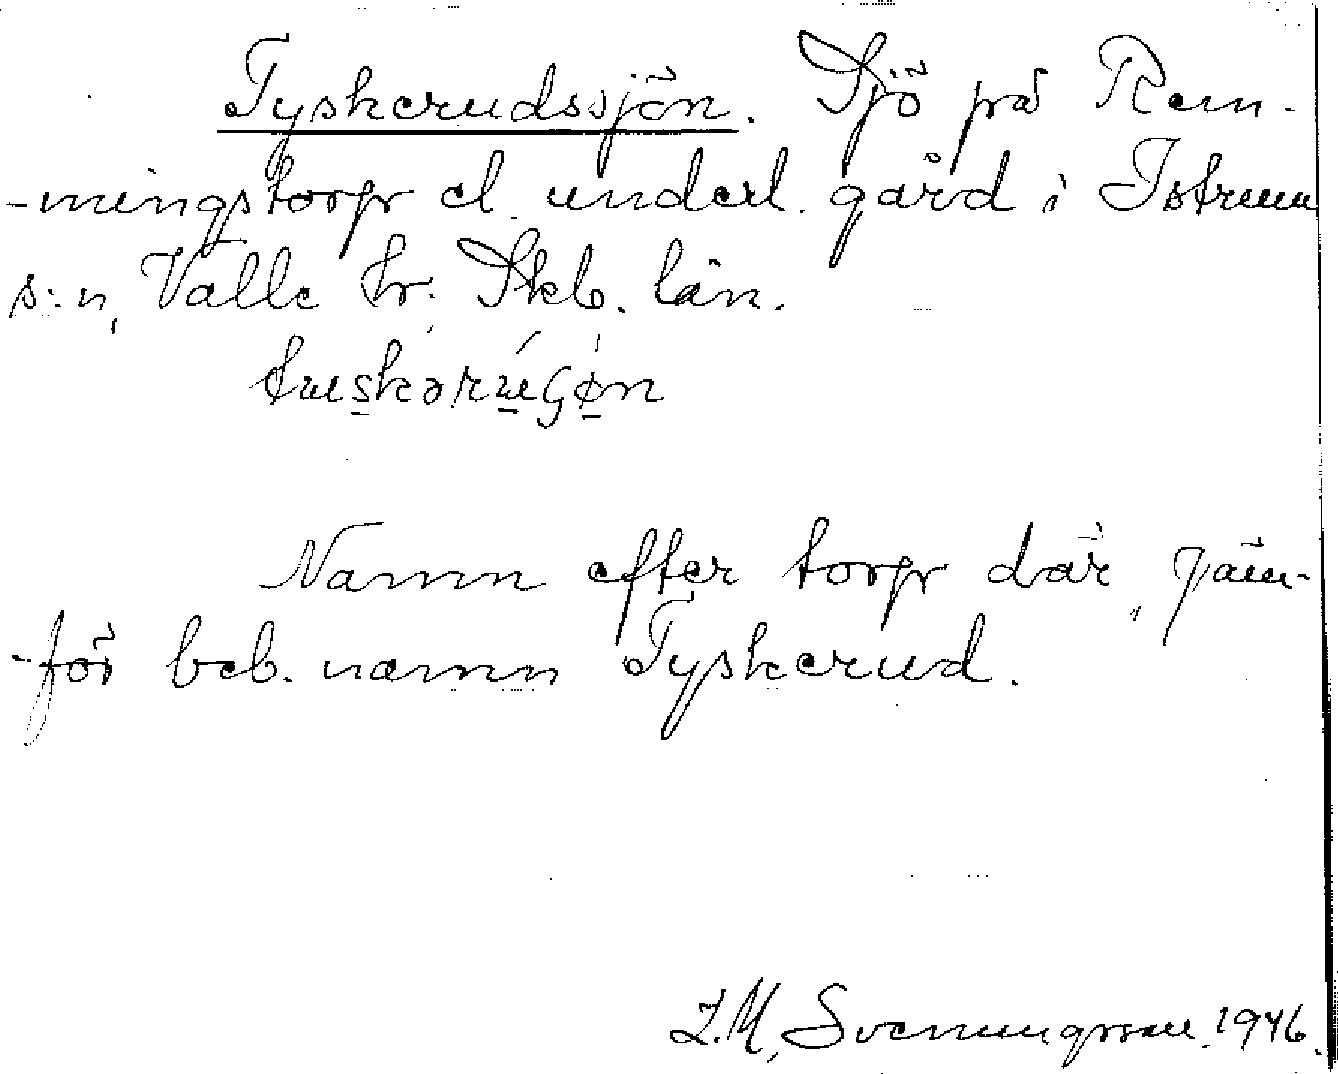 Tyskerudssjön. Sjö på Rem-
-mingstorp el. underl. gård i Istrum
s:n, Valle hr. Skb. län.
Namn efter torp där, jäm-
-för beb. namn Tyskerud.
Z.M. Svenungsson. 1946.